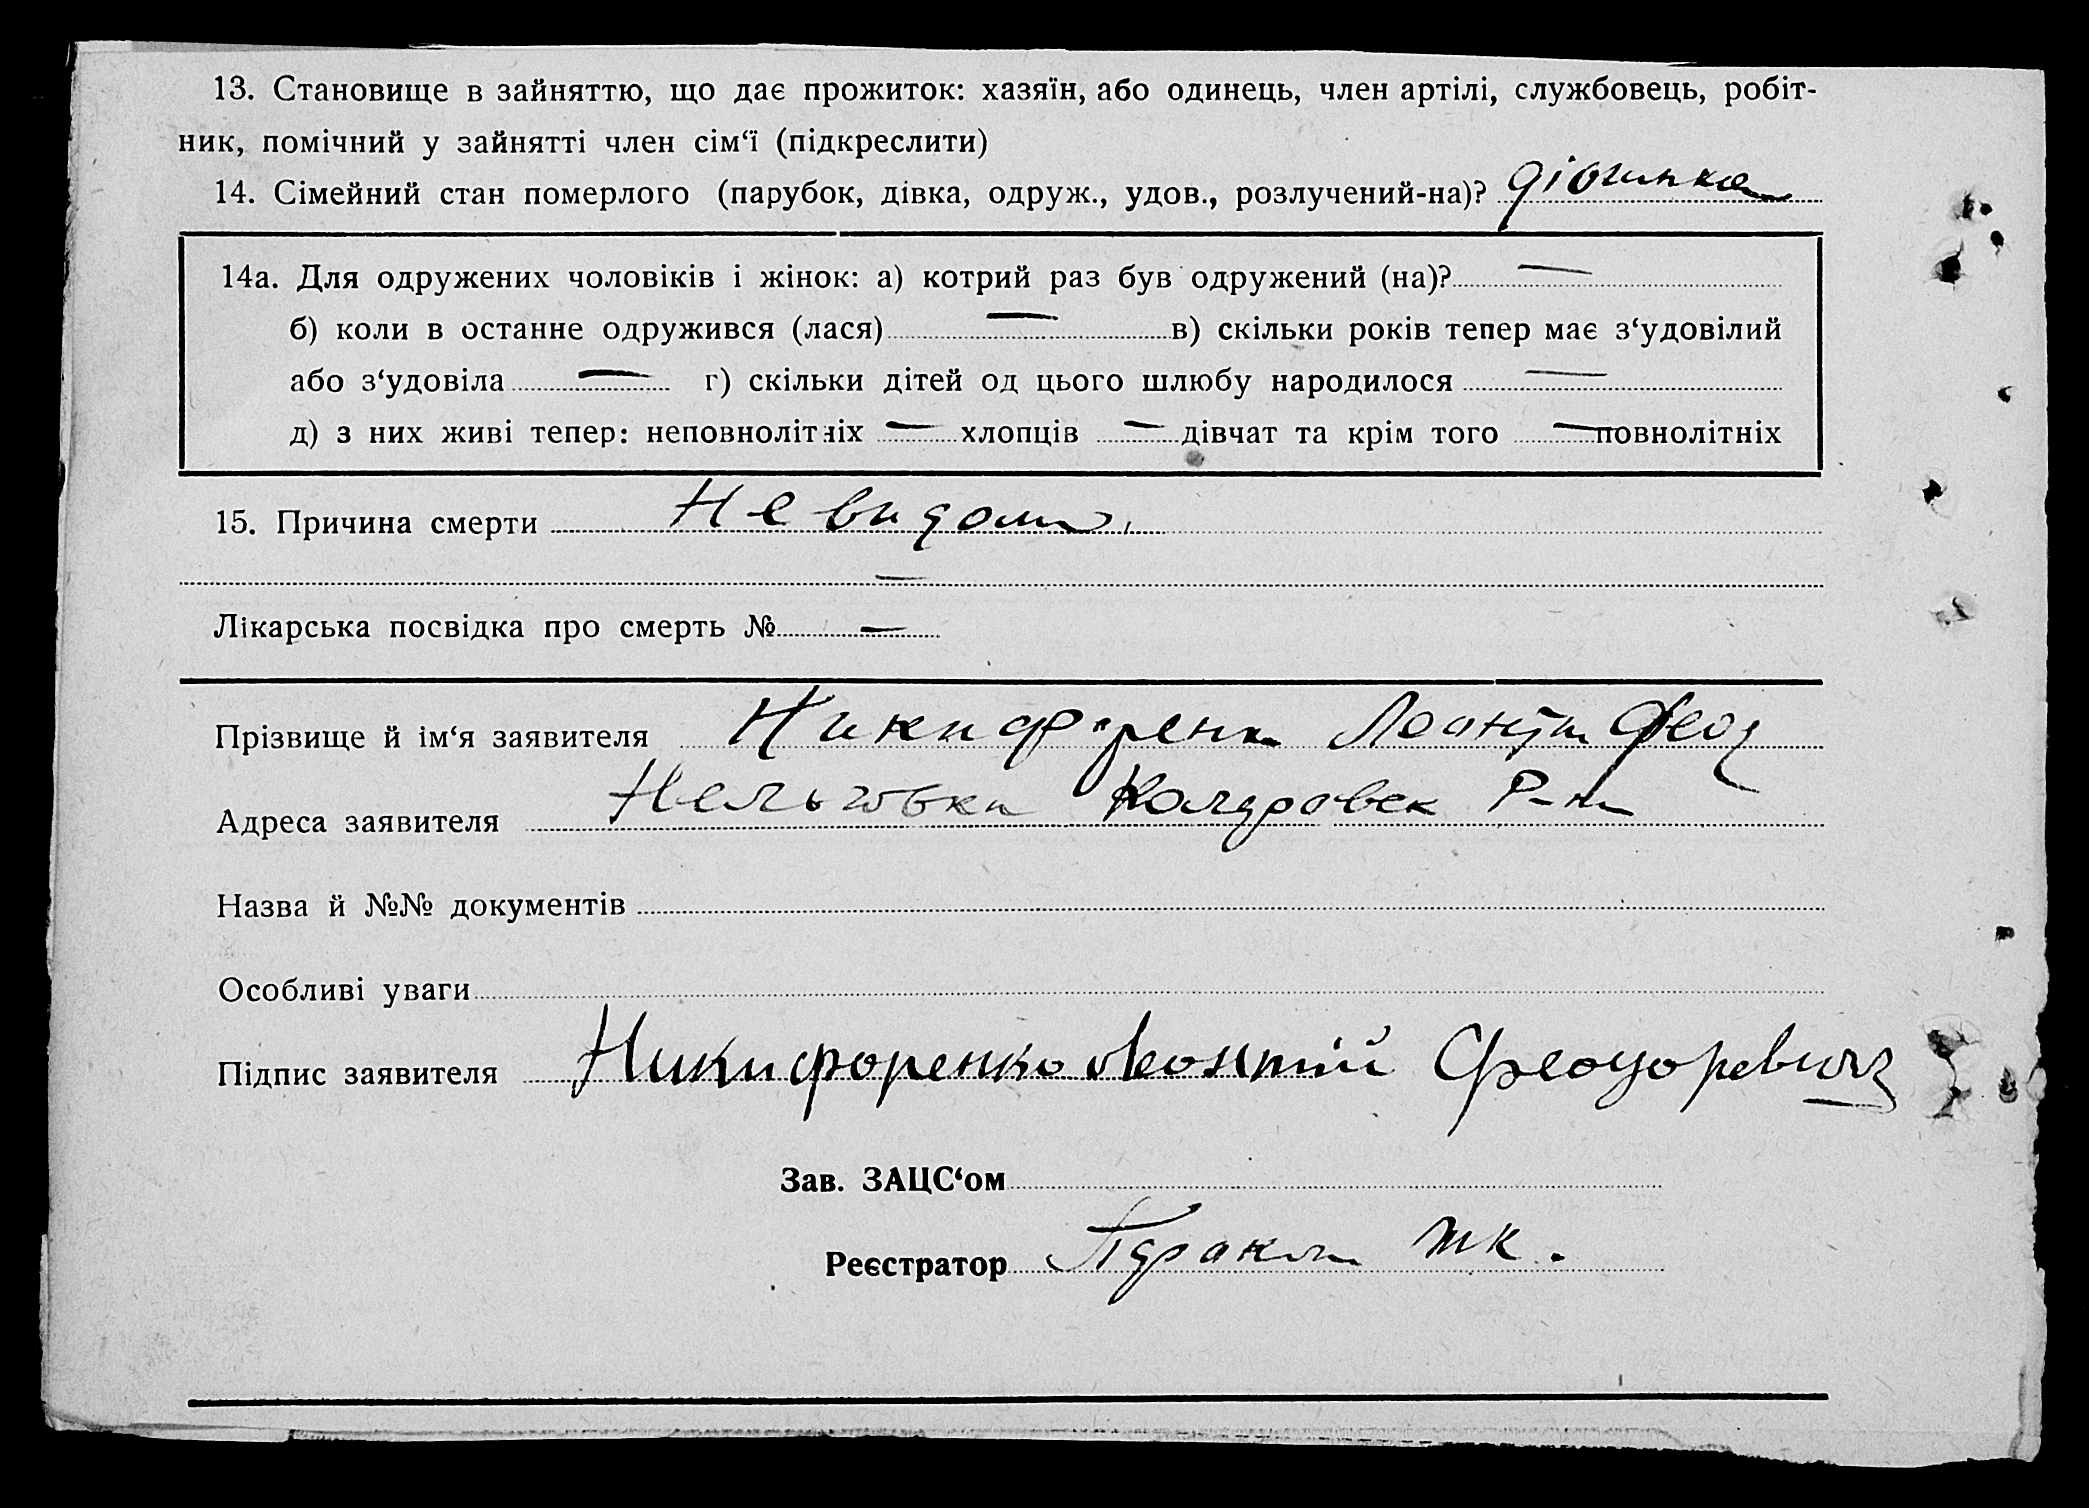 13. Становище в зайняттю, що дає прожиток: хазяїн, або одинець, член артілі, службовець, робіт-
ник, помічний у зайнятті член сім‘ї (підкреслити)
14. Сімейний стан померлого (парубок, дівка, одруж., удов., розлучений-на)?
14а. Для одружених чоловіків і жінок: а) котрий раз був одружений (на)? —
б) коли в останне одружився (лася) — в) скільки років тепер має з‘удовілий
або з‘удовіла — г) скільки дітей од цього шлюбу народилося —
д) з них живі тепер: неповнолітніх — хлопців — дівчат та крім того — повнолітніх
15. Причина смерти Не видомо
—
Лікарська посвідка про смерть № —
Прізвище й ім‘я заявителя Никифоренк Леонтій Феод
Адреса заявителя Р-н
Назва й №№ документів
Особливі уваги
Підпис заявителя Никифоренко Леонтий Феодоревич
Зав. ЗАЦС‘ом
Реєстратор